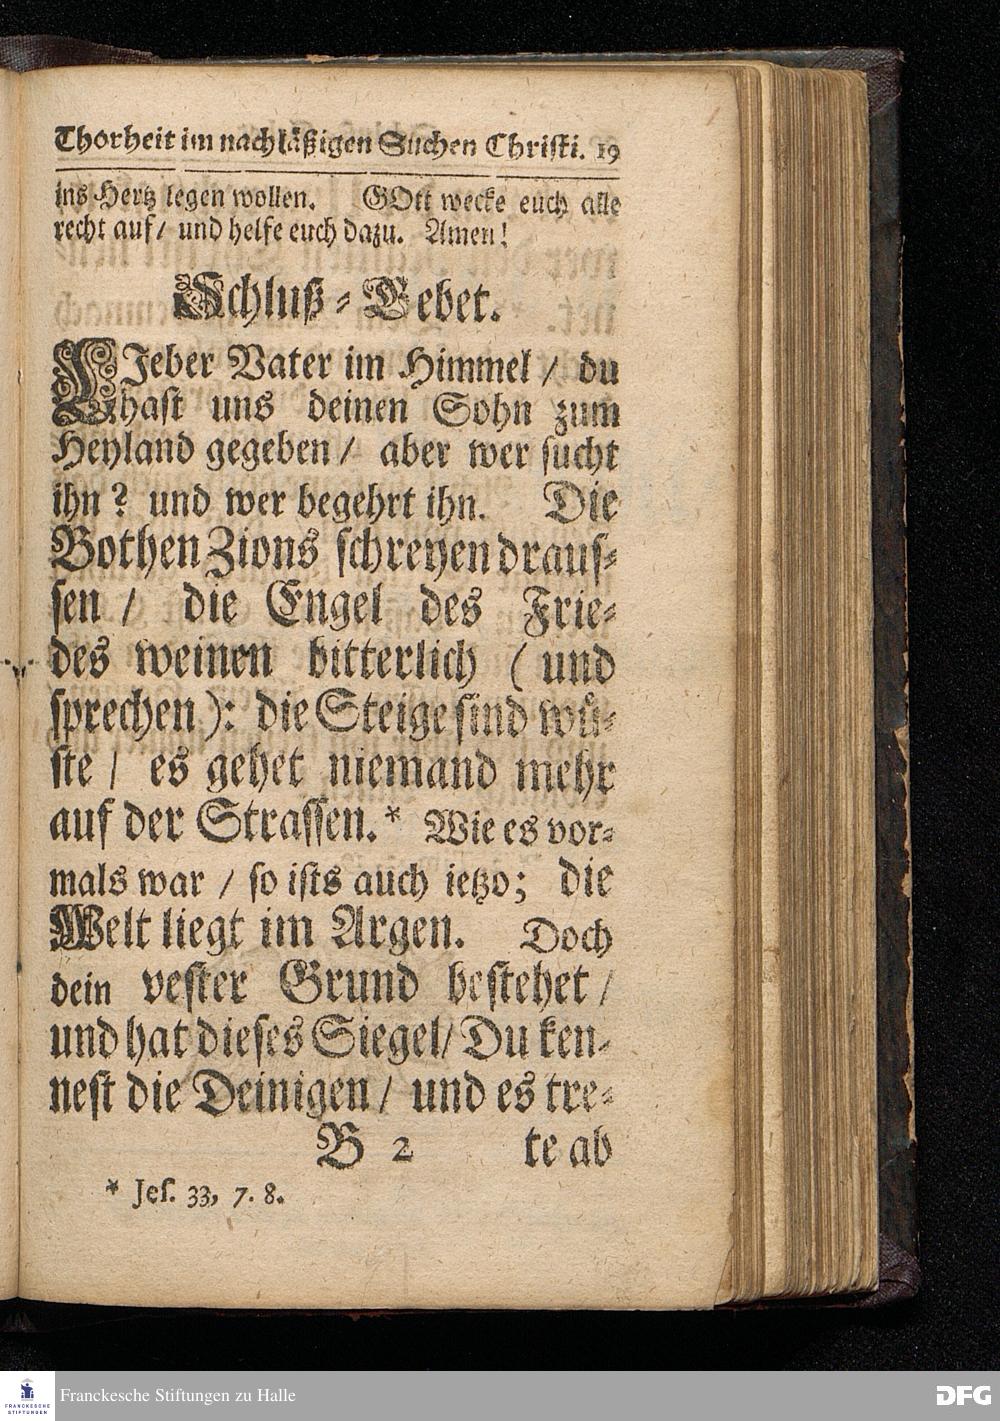 Thorheit im nachläßigen Suchen Christi. 19
ins Hertz legen wollen. GOtt wecke euch alle
recht auf/ und helfe euch dazu. Amen!
Schluß-Gebet.
LIeber Vater im Himmel / du
hast uns deinen Sohn zum
Heyland gegeben / aber wer sucht
ihn? und wer begehrt ihn. Die
Bothen Zions schreyen draus-
sen / die Engel des Frie-
des weinen bitterlich (und
sprechen): die Steige sind wü-
ste / es gehet niemand mehr
auf der Strassen.* Wie es vor-
mals war / so ists auch ietzo; die
Welt liegt im Argen. Doch
dein vester Grund bestehet /
und hat dieses Siegel/ Du ken-
nest die Deinigen / und es tre-
B 2 te ab
* Jes. 33, 7. 8.
FRANCKESCHE
STIFTUNGEN
Franckesche Stiftungen zu Halle
DFG